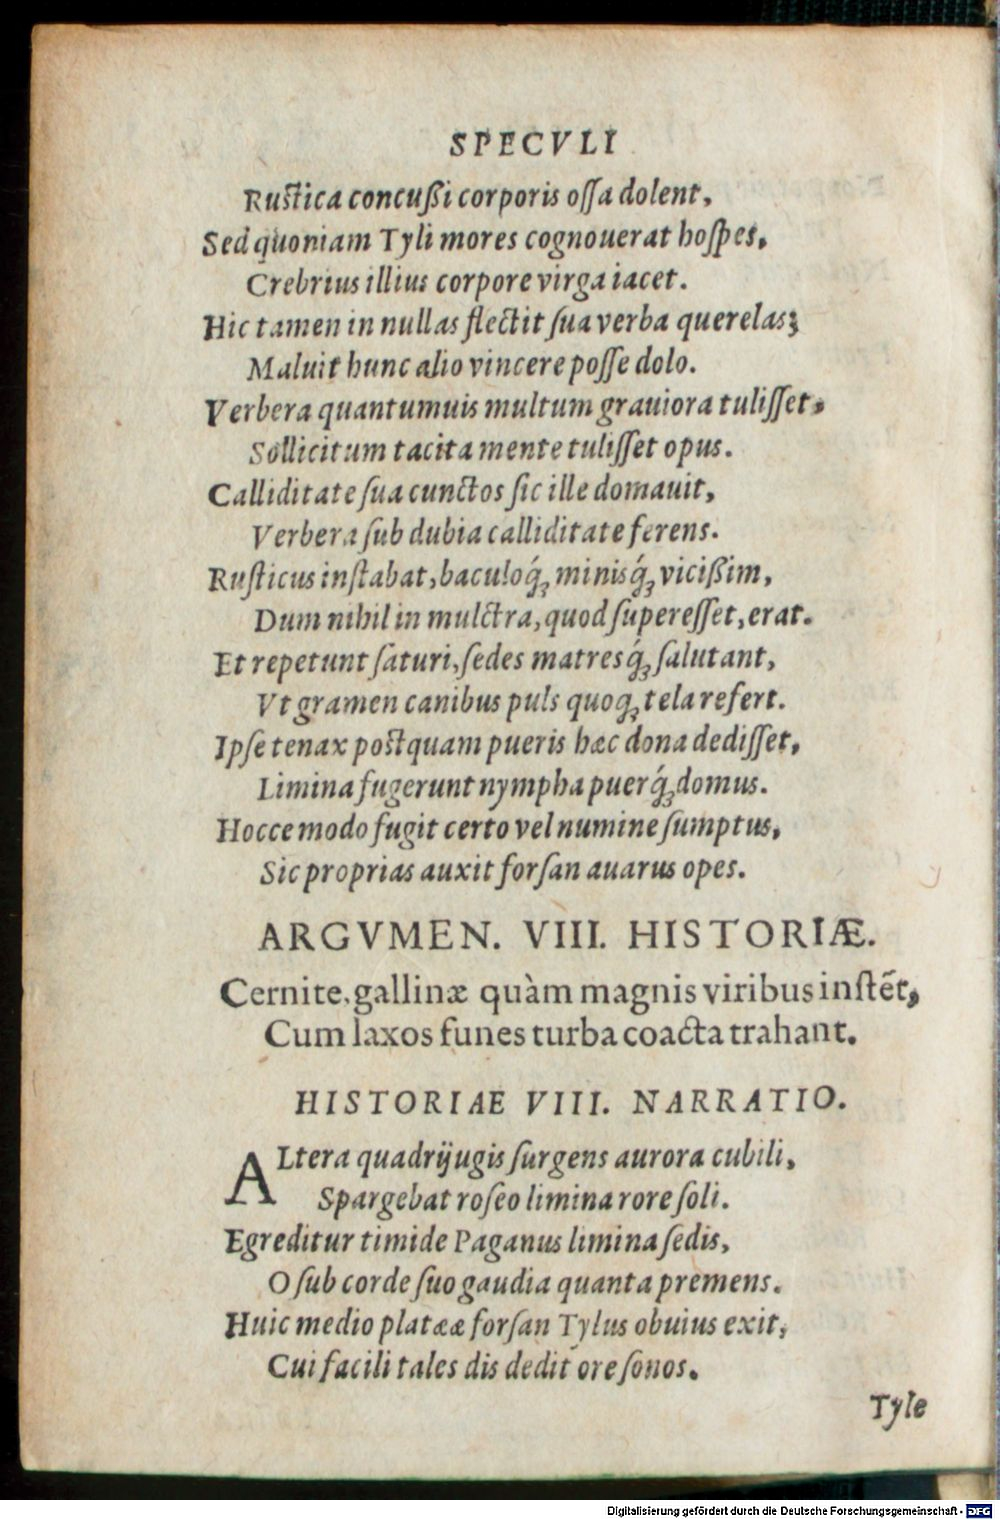 SPECVLI
Rustica concußi corporis oſſa dolent,
Sed quoniam Tyli mores cognouerat hoſpes,
Crebrius illius corpore virga iacet.
Hic tamen in nullas flectit ſua verba querelas;
Maluit hunc alio vincere poſſe dolo.
Verbera quantumuis multum grauiora tuliſſet,
Sollicitum tacita mente tuliſſet opus.
Calliditate ſua cunctos ſic ille domauit,
Verbera ſub dubia calliditate ferens.
Ruſticus inſtabat, baculoq́ꝫ minisq́ꝫ vicißim,
Dum nihil in mulctra, quod ſupereſſet, erat.
Et repetunt ſaturi, ſedes matresq́ꝫ ſalutant,
Vt gramen canibus puls quoqꝫ tela refert.
Ipſe tenax postquam pueris hæc dona dediſſet,
Limina fugerunt nympha puerq́ꝫ domus.
Hocce modo fugit certo vel numine ſumptus,
Sic proprias auxit forſan auarus opes.
ARGVMEN. VIII. HISTORIÆ.
Cernite, gallinæ quàm magnis viribus inſtēt,
Cum laxos funes turba coacta trahant.
HISTORIAE VIII. NARRATIO.
ALtera quadrijugis ſurgens aurora cubili,
Spargebat roſeo limina rore ſoli.
Egreditur timide Paganus limina ſedis,
O ſub corde ſuo gaudia quanta premens.
Huic medio platææ forſan Tylus obuius exit,
Cui facili tales dis dedit ore ſonos.
Tyle
Digitalisierung gefördert durch die Deutsche Forschungsgemeinschaft - DFG